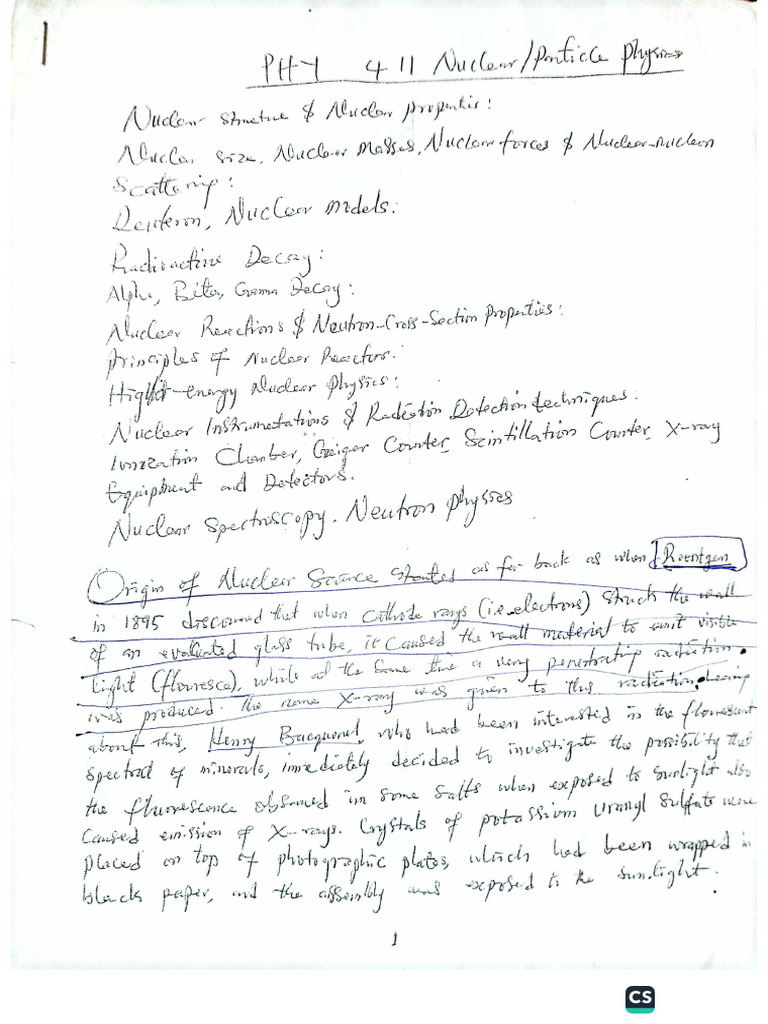 PHY 411 Nuclear/Particle Physics
Nuclear Structure & Nuclear properties:
Nuclear size, Nuclear Masses, Nuclear forces & Nuclear-nucleon
Scattering:
Deuteron, Nuclear models:
Radioactive Decay:
Alpha, Beta, Gamma Decay:
Nuclear Reactions & Neutron-Cross-Section Properties:
Principles of Nuclear Reactors:
High-energy Nuclear Physics:
Nuclear Instrumentations & Radiation Detection techniques.
Ionization Chamber, Geiger Counter, Scintillation Counter, X-ray
Equipment and Detectors.
Nuclear Spectroscopy. Neutron physics
Origin of Nuclear Science started as far back as when Roentgen
in 1895 discovered that when cathode rays (i.e. electrons) struck the wall
of an evacuated glass tube, it caused the wall material to emit visible
light (flouresce), while at the same time a very penetrating radiation.
was produced. the name X-ray was given to this radiation. Hearing
about this, Henry Bacquerel, who had been interested in the flourescent
spectral of minerals, immediately decided to investigate the possibility that
the fluorescence observed in some salts when exposed to sunlight also
caused emission of X-rays. Crystals of potassium Uranyl Sulfate were
placed on top of photographic plates, which had been wrapped in
black paper, and the assembly was exposed to the sunlight.
1
CS